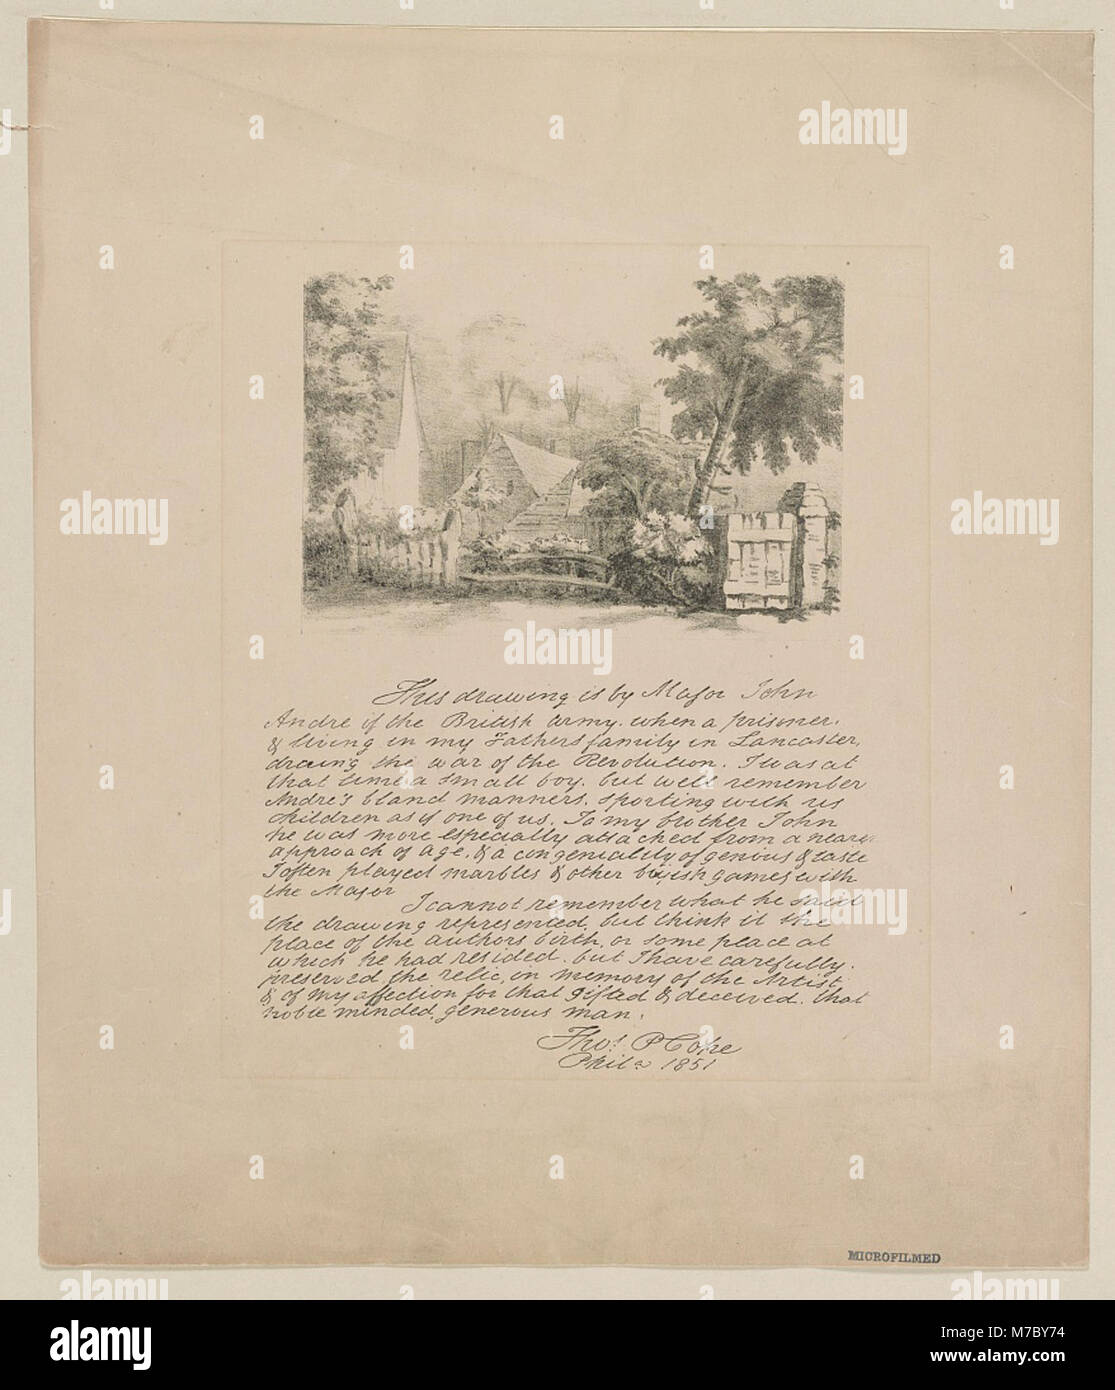 This drawing is by Major John
Andre of the British army. when a prisoner.
& living in my Fathers family in Lancaster,
during the war of the Revolution. I was at
that time a small boy. but well remember
Andre's bland manners, sporting with us
children as if one of us. To my brother John
he was more especially attached from a nearer
approach of age. & a congeniality of genious & taste
I often played marbles & other boyish games with
the Major
I cannot remember what he said
the drawing represented, but think it the
place of the authors birth, or some place at
which he had resided. but I have carefully.
preserved the relic, in memory of the Artist
& of my affection for that gifted & deceived. that
noble minded, generous man.
Thos. P Cope
Phila 1851
MICROFILMED
alamy
alamy
alamy
alamy
alamy
alamy
alamy
alamy
a
a
a
a
alamy
Image ID: M7BY74
www.alamy.com